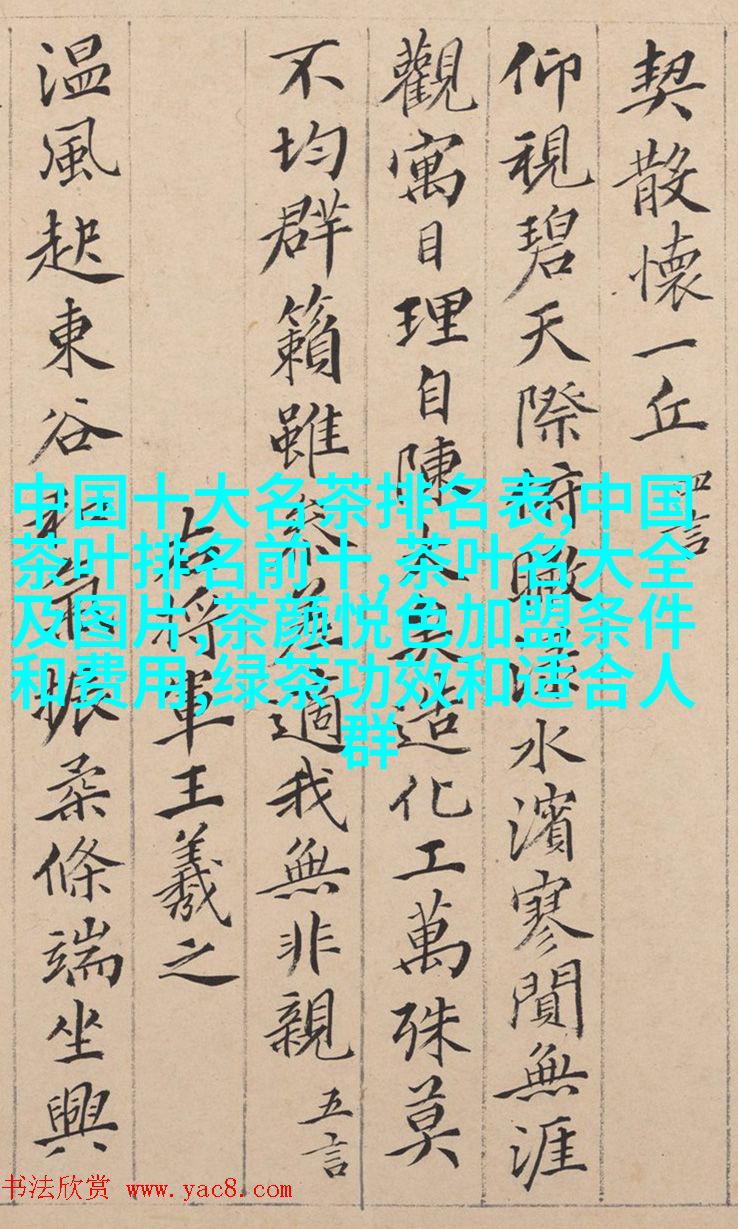 契散懷一丘 四言
仰視碧天際俯瞰淥水濱寥閴無涯
觀寓目理自陳大矣造化工萬殊莫
不均群籟雖參差適我無非親 五言
右將軍王羲之
温風起東谷和氣振柔條端坐興
中国十大名茶排名表,中国
茶叶排名前十,茶叶名大全
及图片,茶颜悦色加盟条件
和费用,绿茶功效和适合人
群
书法欣赏 www.yac8.com